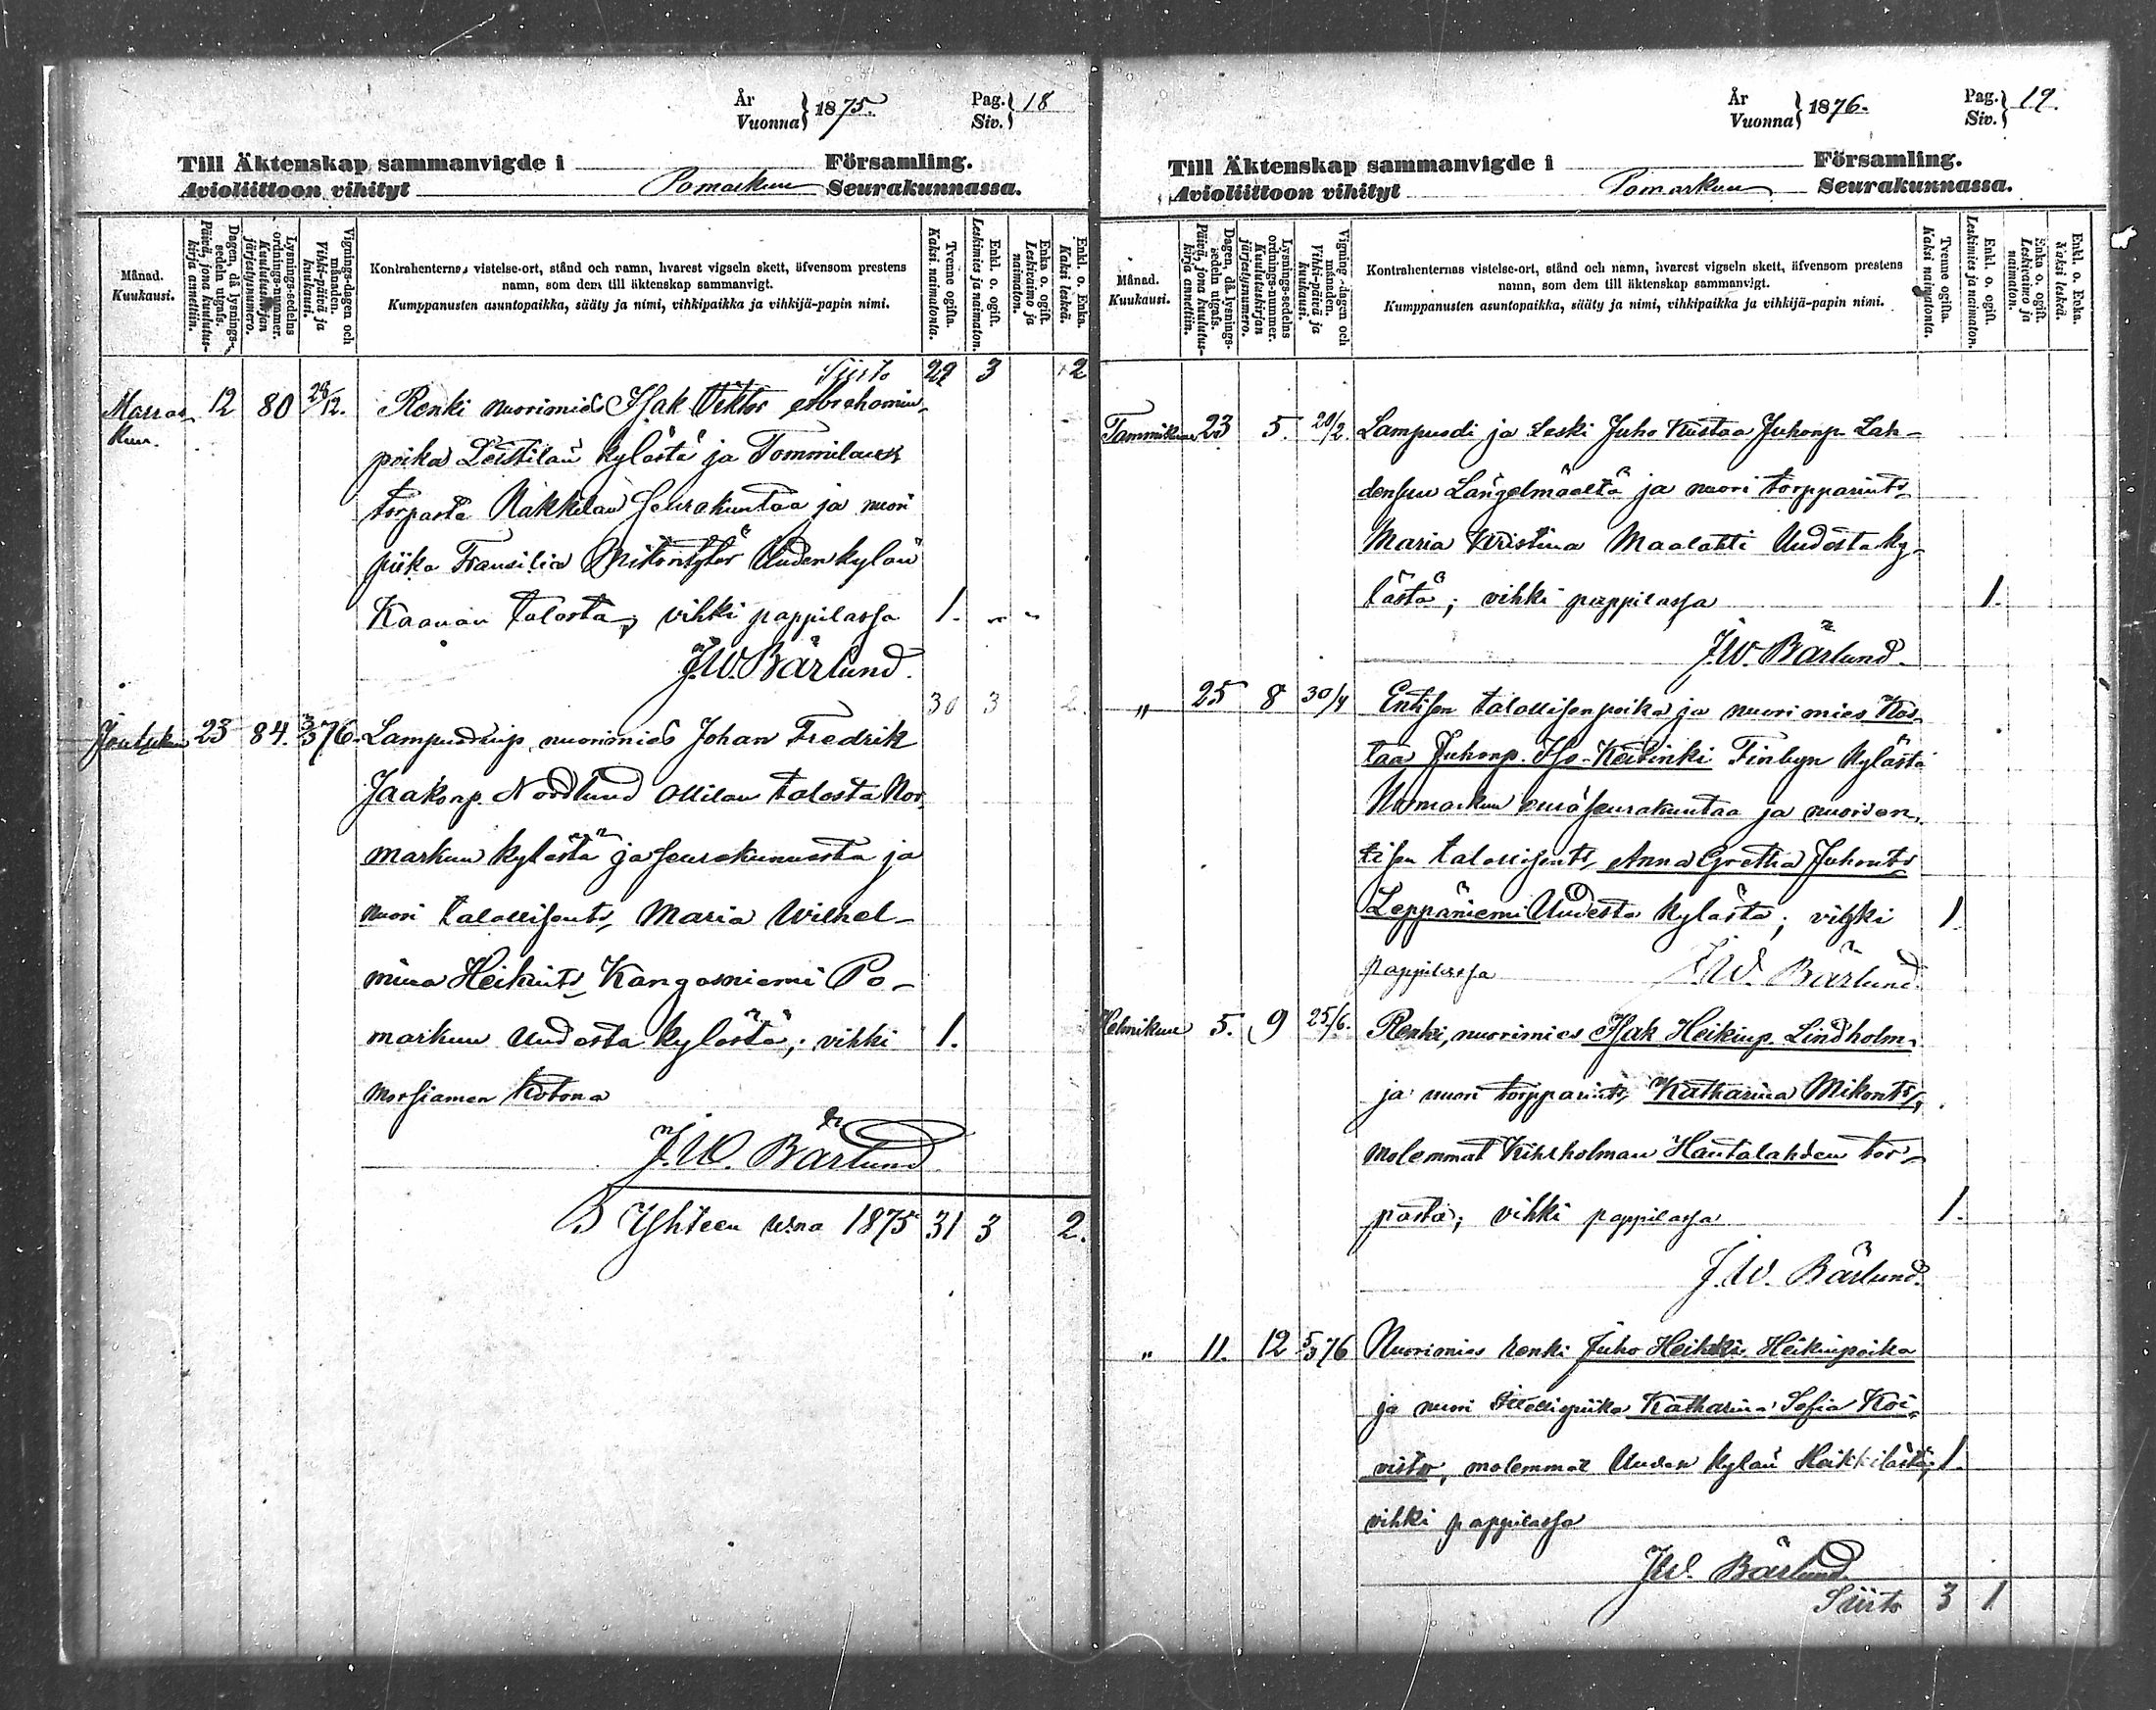 År
Vuonna } 1875.
Pag.
Siv. } 18
Till Äktenskap sammanvigde i Församling.
Avioliittoon vihityt Pomarkun Seurakunnassa.
Månad.
Kuukausi.
Dagen, då lysnings-
sedeln utgafs.
Päivä, jona kuulutus-
kirja annettiin.
Lysnings-sedelns
ordnings-nummer.
Kuulutuskirjan
järjestysnumero.
Vignings-dagen och
månaden.
Vihki-päivä ja
kuukausi.
Kontrahenternas vistelse-ort, stånd och namn, hvarest vigseln skett, äfvensom prestens
namn, som dem till äktenskap sammanvigt.
Kumppanusten asuntopaikka, sääty ja nimi, vihkipaikka ja vihkijä-papin nimi.
Tvenne ogifta.
Kaksi naimatonta.
Enkl. o. ogift.
Leskimies ja naimaton.
Enka o. ogift.
Leskivaimo ja
naimaton.
Enkl. o. Enka.
Kaksi leskeä.
Siirto 29 3 2
Marras 12 80 28/12. Renki nuorimies Isak Viktor Abrahamin
kuu. poika Leistilän kylästä ja Tommilan
torpasta Nakkilan seurakuntaa ja nuori
piika Fransilia Mikontytär Uuden kylän
Kaanan talosta, vihki pappilassa 1. " "
J.W. Bärlund.
30 3 2.
Joulukuu 23 84. 3/3 76. Lampuodinp. nuorimies Johan Fredrik
Jaakonp. Nordlund Ollilan talosta Nor
markun kylästä ja seurakunnasta ja
nuori talollisents. Maria Wilhel-
mina Heikints. Kangasniemi Po-
markun Uudesta kylästä; vihki 1.
morsiamen kotona
J.W. Bärlund
Yhteen v:na 1875 31 3 2.
År
Vuonna } 1876.
Pag.
Siv. } 19.
Till Äktenskap sammanvigde i Församling.
Avioliittoon vihityt Pomarkun Seurakunnassa.
Månad.
Kuukausi.
Dagen, då lysnings-
sedeln utgafs.
Päivä, jona kuulutus-
kirja annettiin.
Lysnings-sedelns
ordnings-nummer.
Kuulutuskirjan
järjestysnumero.
Vignings-dagen och
månaden.
Vihki-päivä ja
kuukausi.
Kontrahenternas vistelse-ort, stånd och namn, hvarest vigseln skett, äfvensom prestens
namn, som dem till äktenskap sammanvigt.
Kumppanusten asuntopaikka, sääty ja nimi, vihkipaikka ja vihkijä-papin nimi.
Tvenne ogifta.
Kaksi naimatonta.
Enkl. o. ogift.
Leskimies ja naimaton.
Enka o. ogift.
Leskivaimo ja
naimaton.
Enkl. o. Enka.
Kaksi leskeä.
Tammikuu 23 5. 20/2. Lampuodi ja Leski Juho Kustaa Juhonp. Lah-
densuu Längelmäeltä ja nuori torpparints.
Maria Kristina Maalahti Uudesta ky-
lästä; vihki pappilassa 1.
J.W. Bärlund.
" 25 8 30/4 Entisen talollisen poika ja nuorimies Kus-
taa Juhonp. Iso-Keitinki Finbyn kylästä
Normarkun seurakuntaa ja nuori en
tisen talollisents. Anna Gretha Juhonts
Leppäniemi Uudesta kylästä; vihki 1
pappilassa J.W. Bärlund.
Helmikuu 5. 9 25/6. Renki, nuorimies Isak Heikinp. Lindholm.
ja nuori torpparints. Katharina Mikonts,
molemmat Kihlholman Hautalahden tor-
pasta; vihki pappilassa 1.
J.W. Bärlund.
" 11. 12 5/3 76 Nuorimies renki Juho Heikki Heikinpoika
ja nuori piika Katharina Sofia Koi-
visto, molemmat Uuden kylän Heikkilästä; 1.
vihki pappilassa
J.W. Bärlund.
Siirto 3 1